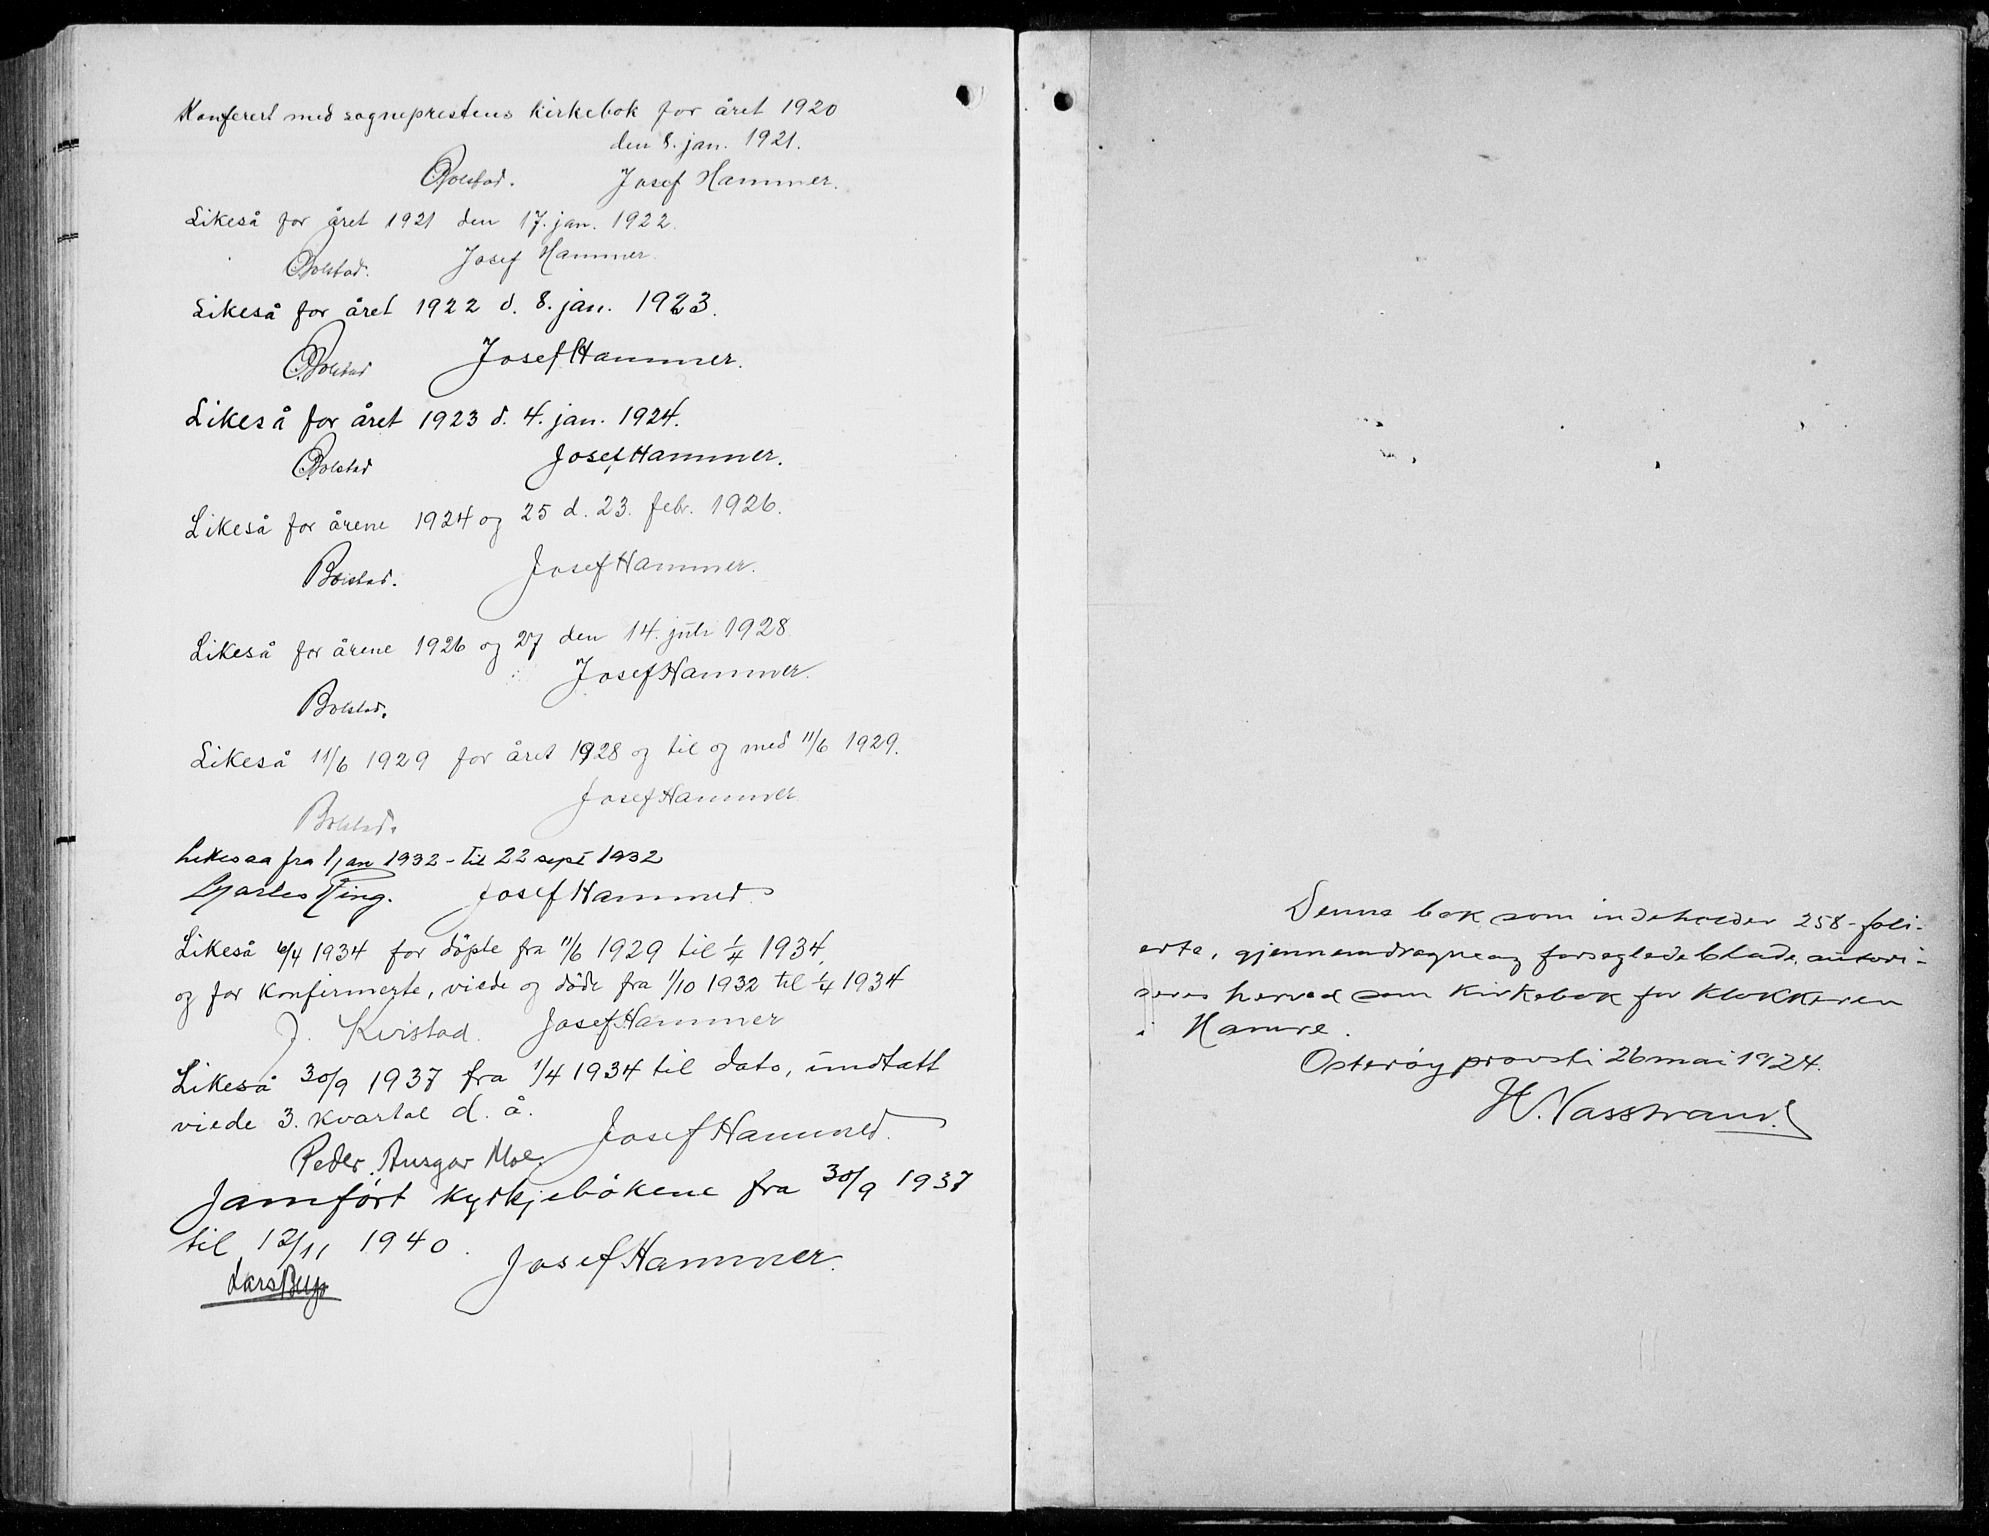 Konferert med sogneprestens kirkebok for året 1920
den 8. jan. 1921.
Bolstad. Josef Hammer.
Likeså for året 1921 den 17. jan. 1922.
Bolstad. Josef Hammer.
Likeså for året 1922 d. 8. jan. 1923.
Bolstad Josef Hammer.
Likeså for året 1923 d. 4. jan. 1924.
Bolstad Josef Hammer.
Likeså for årene 1924 og 25 d. 23. febr. 1926.
Bolstad. Josef Hammer.
Likeså for årene 1926 og 27 den 14. juli 1928
Josef Hammer.
Bolstad.
Likeså 11/6 1929 for året 1928 og til og med 11/6 1929.
Josef Hammer
Bolstad.
Likesaa fra 1 jan 1932 - til 22 sept 1932
Charles Ring. Josef Hammer
Likeså 6/4 1934 for döpte fra 11/6 1929 til 1/4 1934,
og for konfirmerte, viede og döde fra 1/10 1932 til 1/4 1934
J. Kvistad. Josef Hammer
Likeså 30/9 1937 fra 1/4 1934 til dato, undtatt
viede 3. kvartal d. å.
Josef Hammer.
Peder Ansgar Moe.
Jamfört kyrkjebökene fra 30/9 1937
til 12/11 1940.
Josef Hammer.
Lars
Denne bok som indeholder 258 - foli-
erte, gjennemdragne og forseglede blade, autori-
seres herved som kirkebok for klokkeren
i Hamre.
Osterøy provsti 26 mai 1924.
H. Vasstrand.